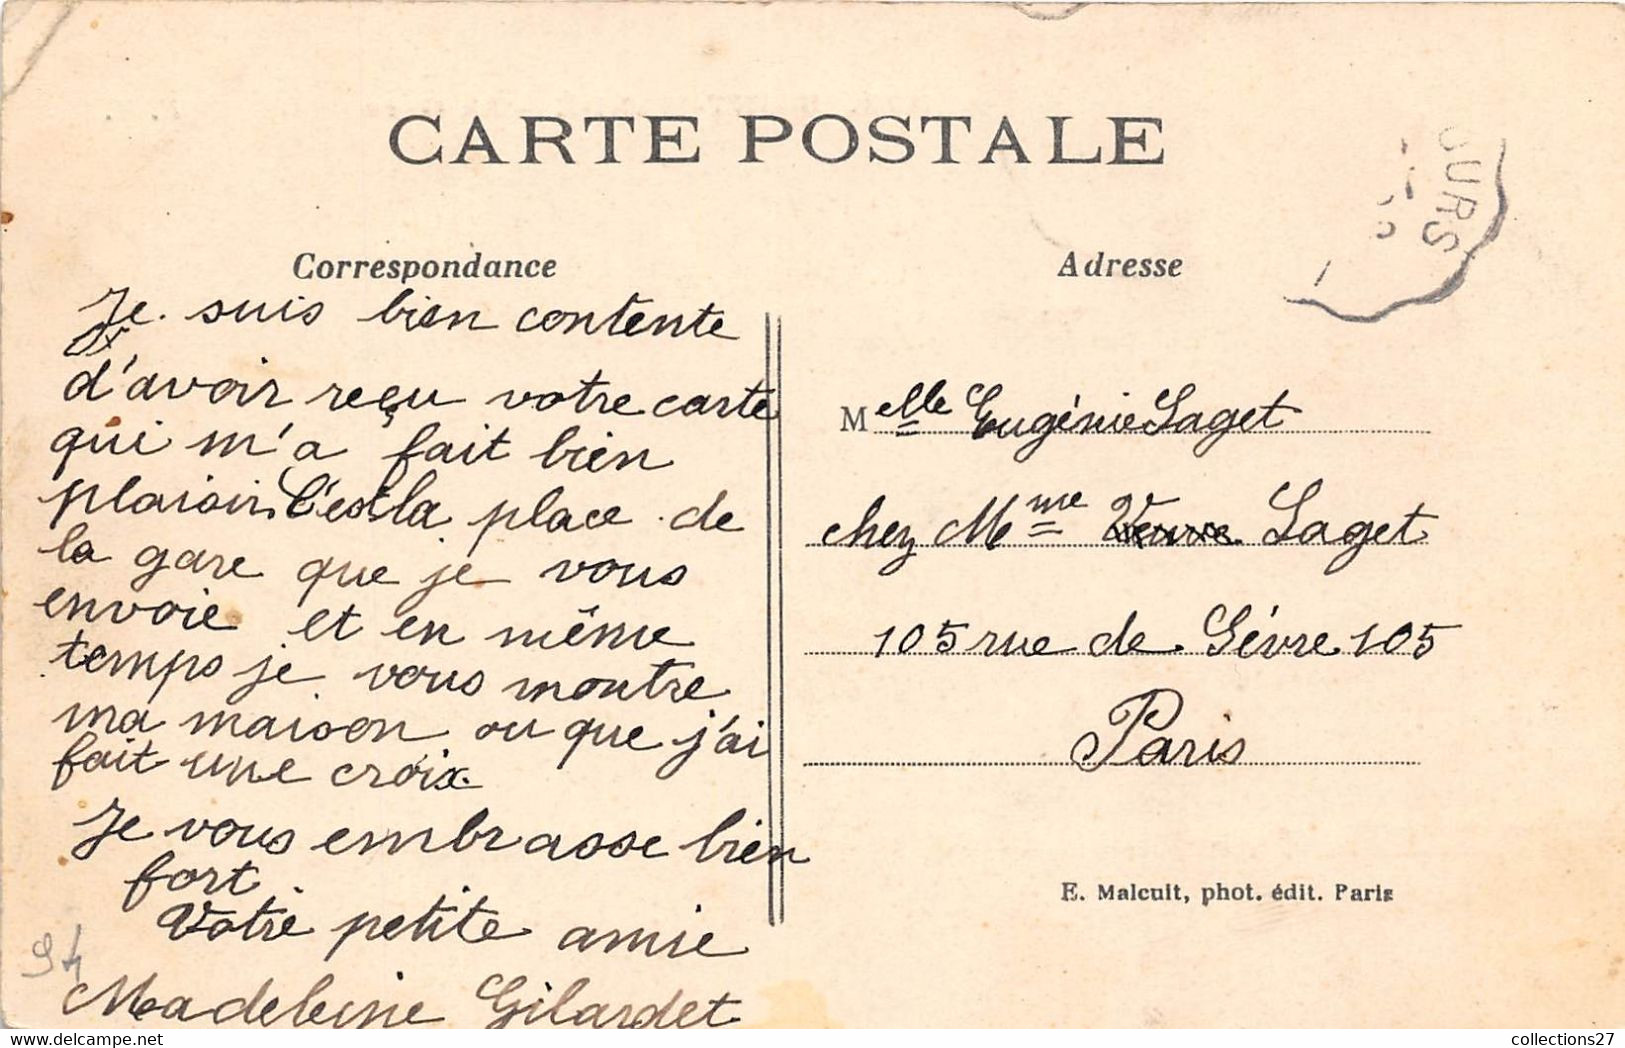 CARTE POSTALE
OURS
Correspondance
Adresse
Je suis bien contente
d'avoir reçu votre carte
qui m'a fait bien
plaisir. C'est la place de
la gare que je vous
envoie et en même
temps je vous montre
ma maison ou que j'ai
fait une croix
Je vous embrasse bien
fort
Votre petite amie
Madeleine Gilardet
94
Melle Eugénie Laget
chez Mme Veuve Laget
105 rue de Sévre 105
Paris
E. Malcuit, phot. édit. Paris
collections27